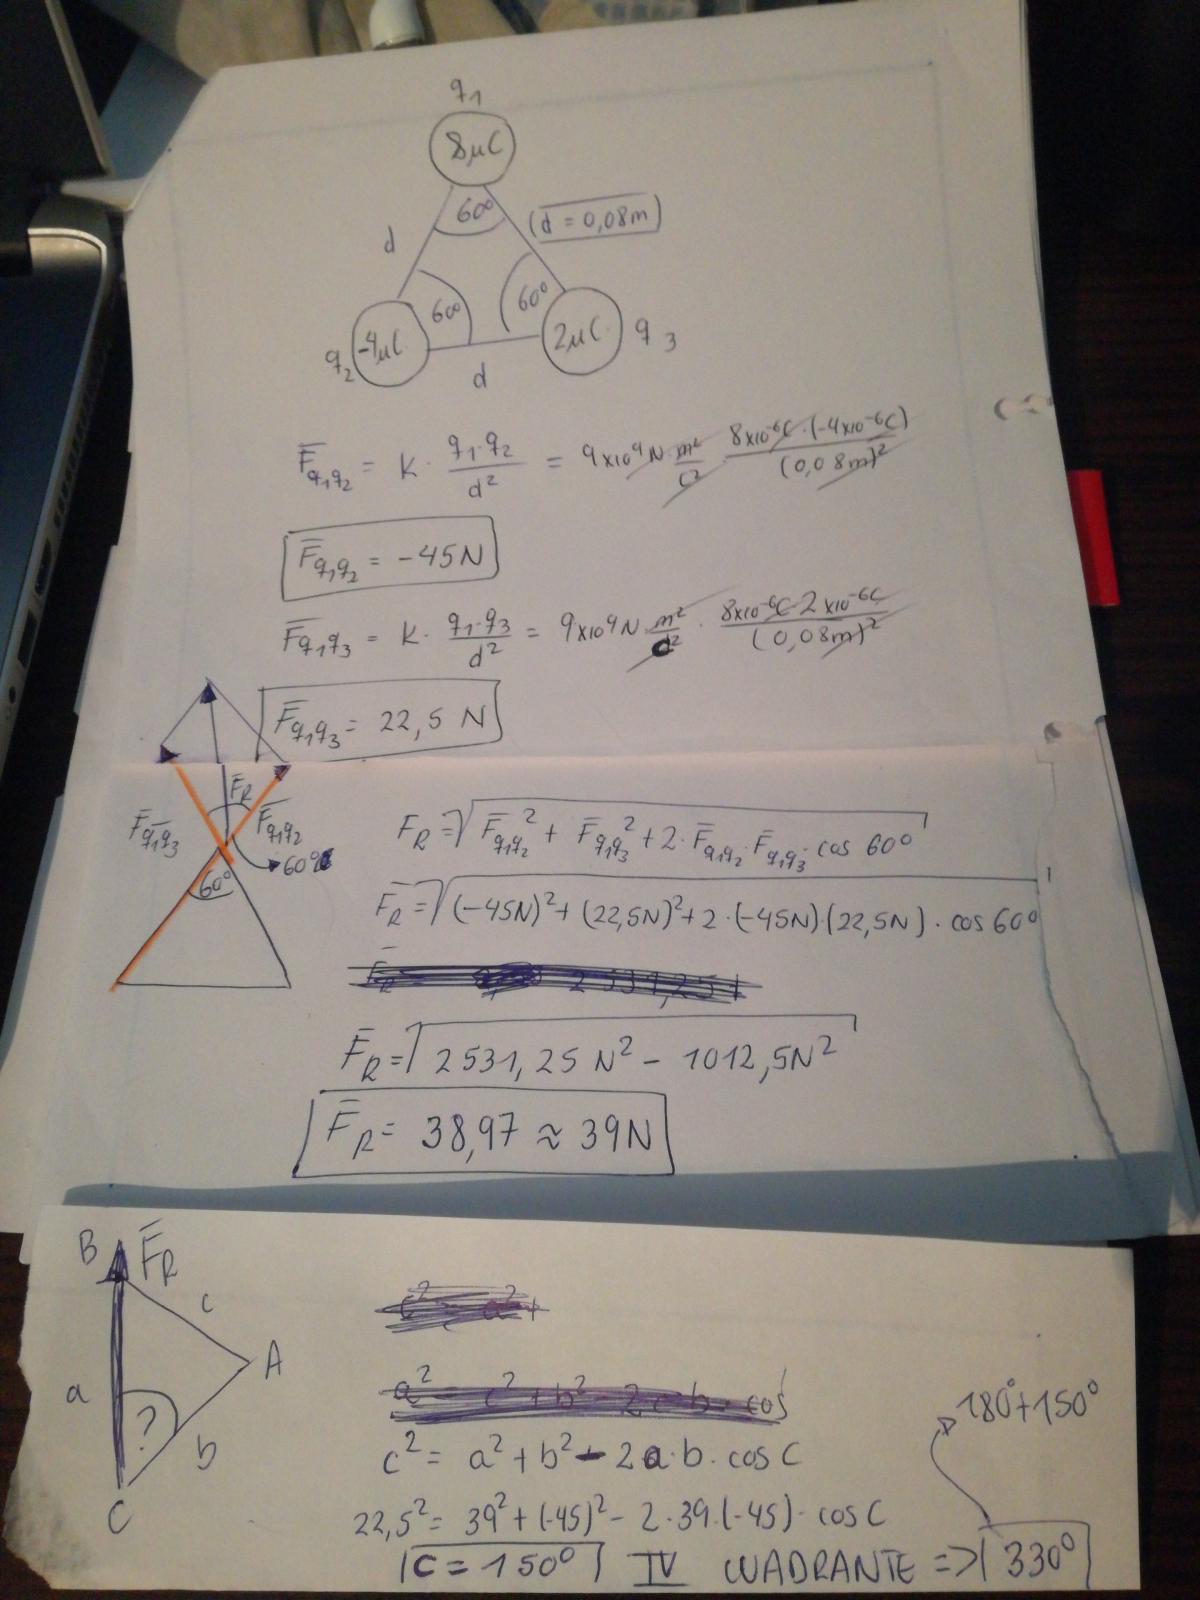 q₁
8μC
60º
(d = 0,08m)
d
60º
60º
q₂
-4μC
2μC
q₃
d
F̅q₁q₂ = K · q₁·q₂/d² = 9x10⁹N·m²/C² · 8x10⁻⁶C·(-4x10⁻⁶C)/(0,08m)²
F̅q₁q₂ = -45N
F̅q₁q₃ = K · q₁·q₃/d² = 9x10⁹N·m²/C² · 8x10⁻⁶C·2x10⁻⁶C/(0,08m)²
F̅q₁q₃ = 22,5 N
F̅R
F̅q₁q₃
F̅q₁q₂
60º
60º
FR = √F̅q₁q₂² + F̅q₁q₃² + 2·F̅q₁q₂·F̅q₁q₃·cos 60º
F̅R = √(-45N)² + (22,5N)² + 2·(-45N)·(22,5N)·cos 60º
F̅R = √2531,25 N² - 1012,5N²
F̅R = 38,97 ≈ 39N
B
F̅R
c
A
a
?
b
C
180º+150º
c² = a² + b² - 2a·b·cos C
22,5² = 39² + (-45)² - 2·39·(-45)·cos C
C = 150º IV CUADRANTE => 330º